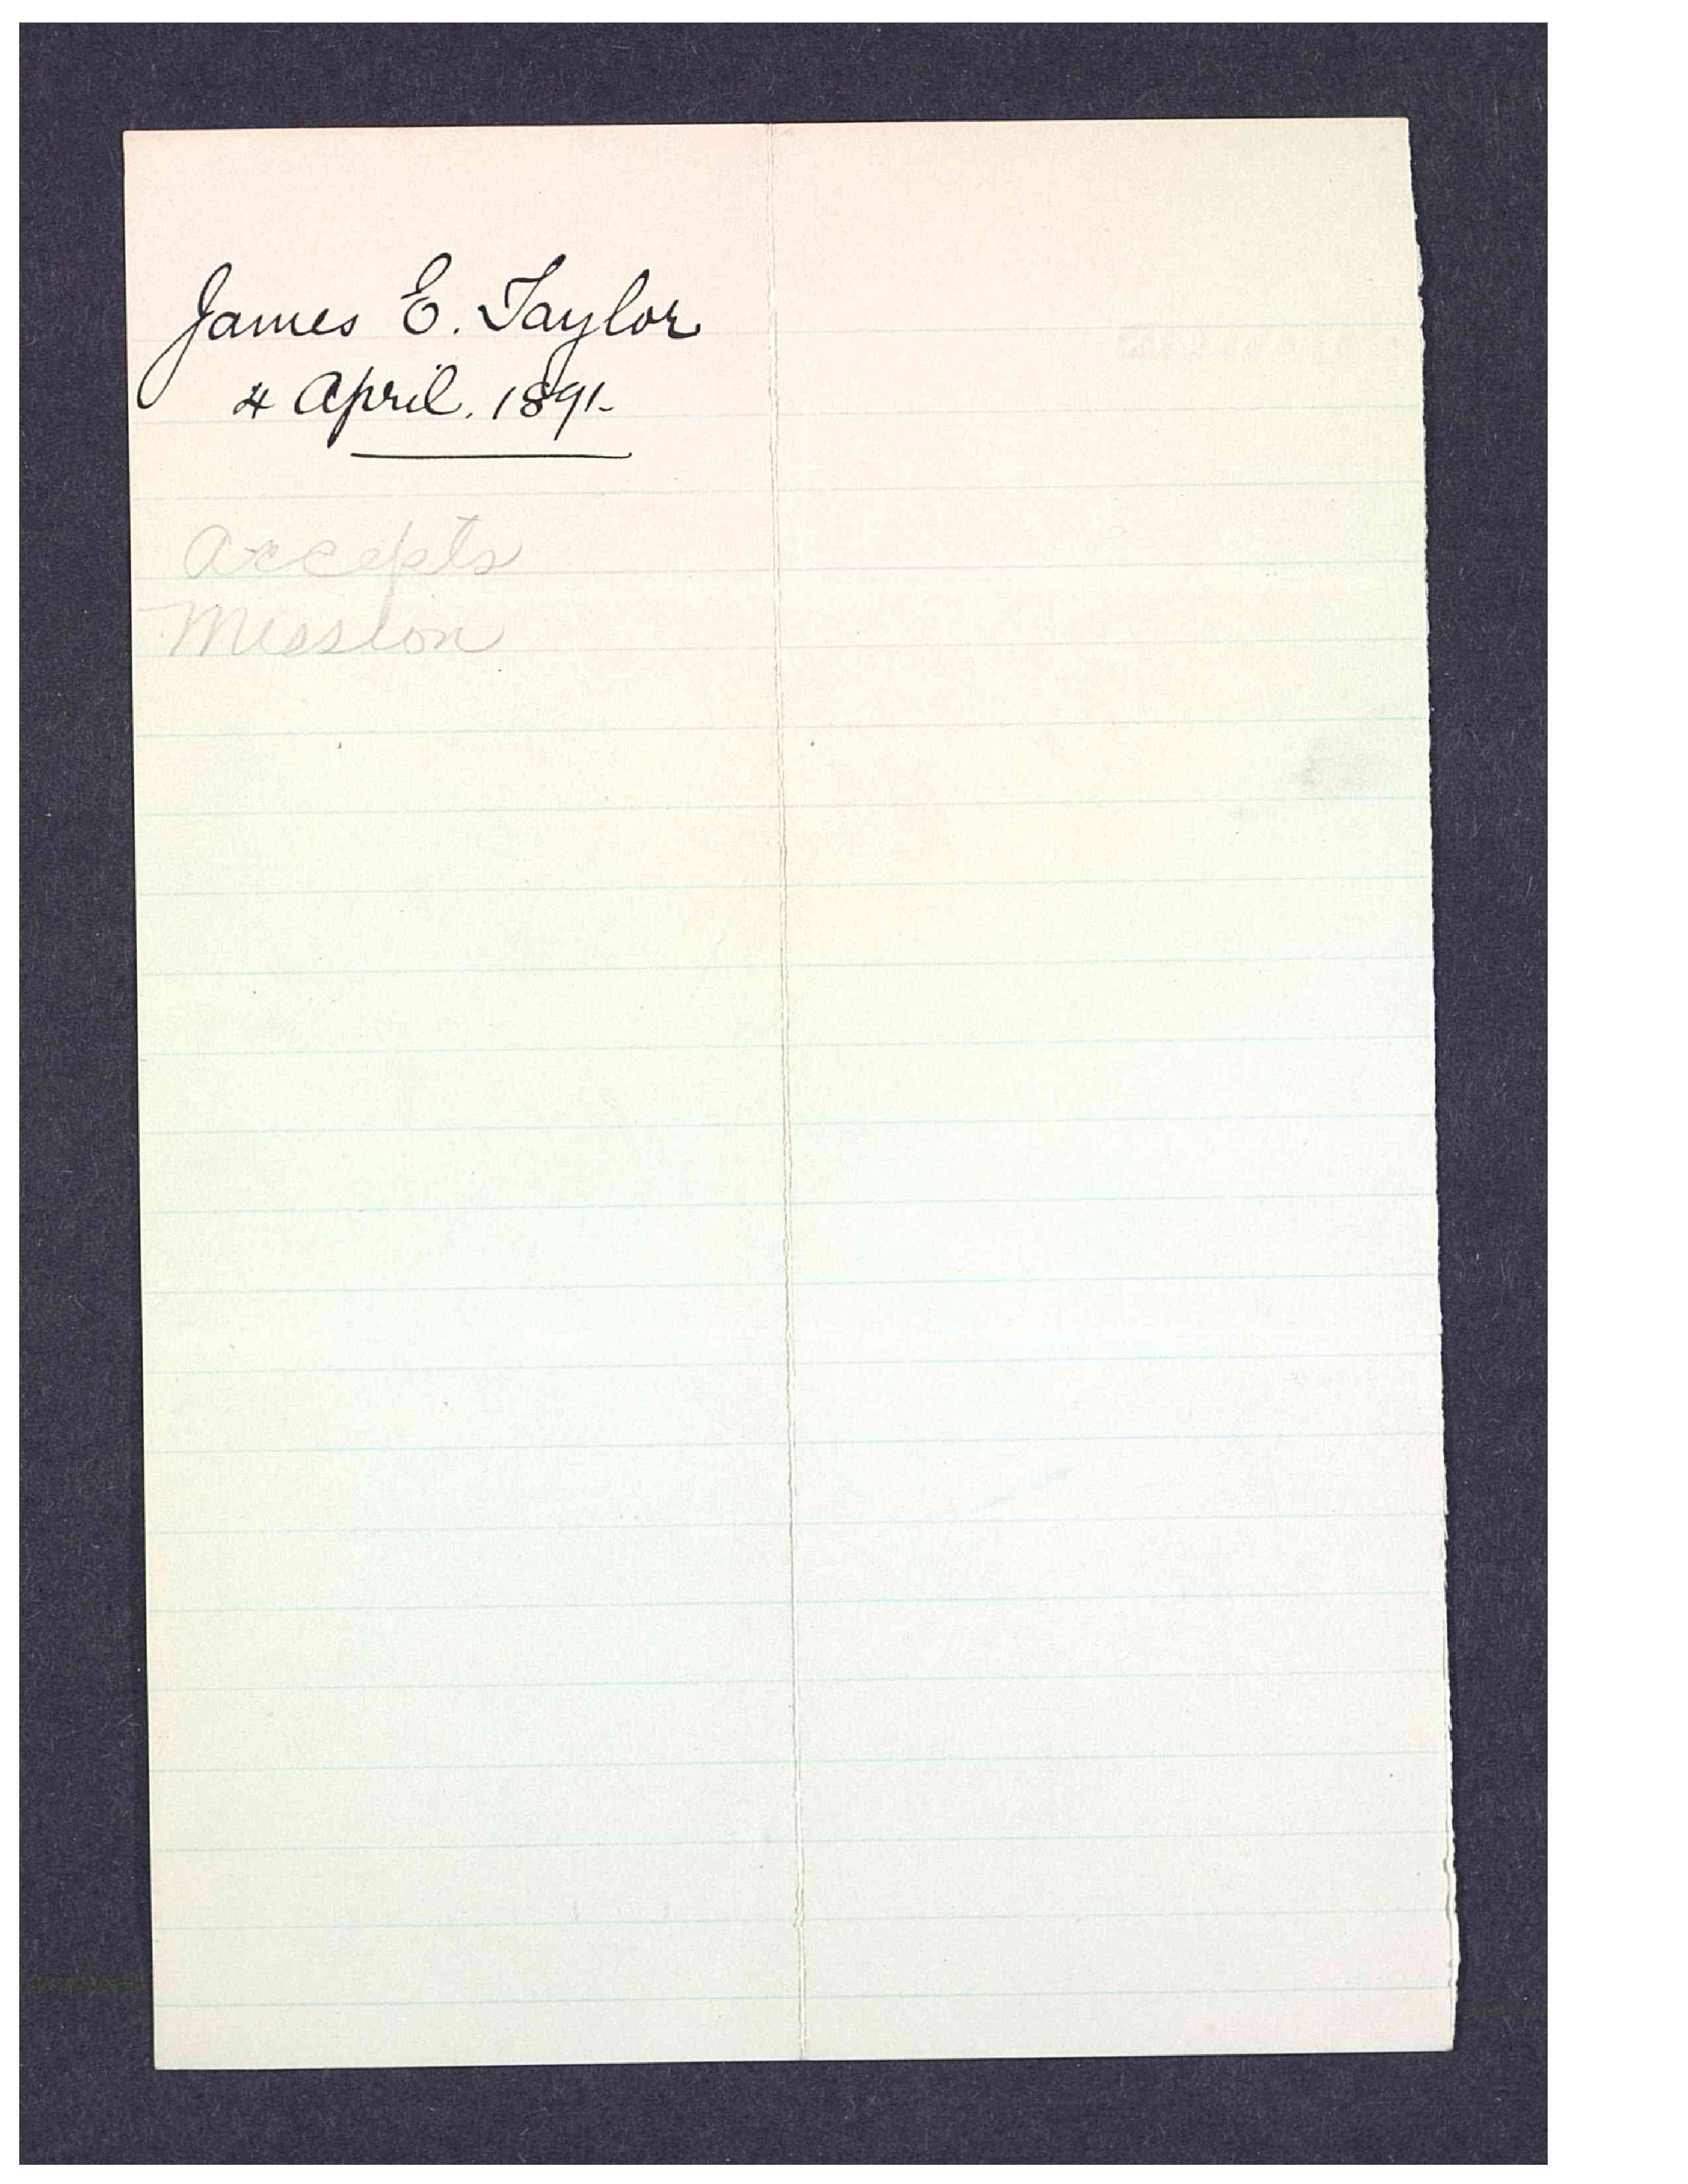 James E. Taylor
4 April. 1891.
Accepts
Mission